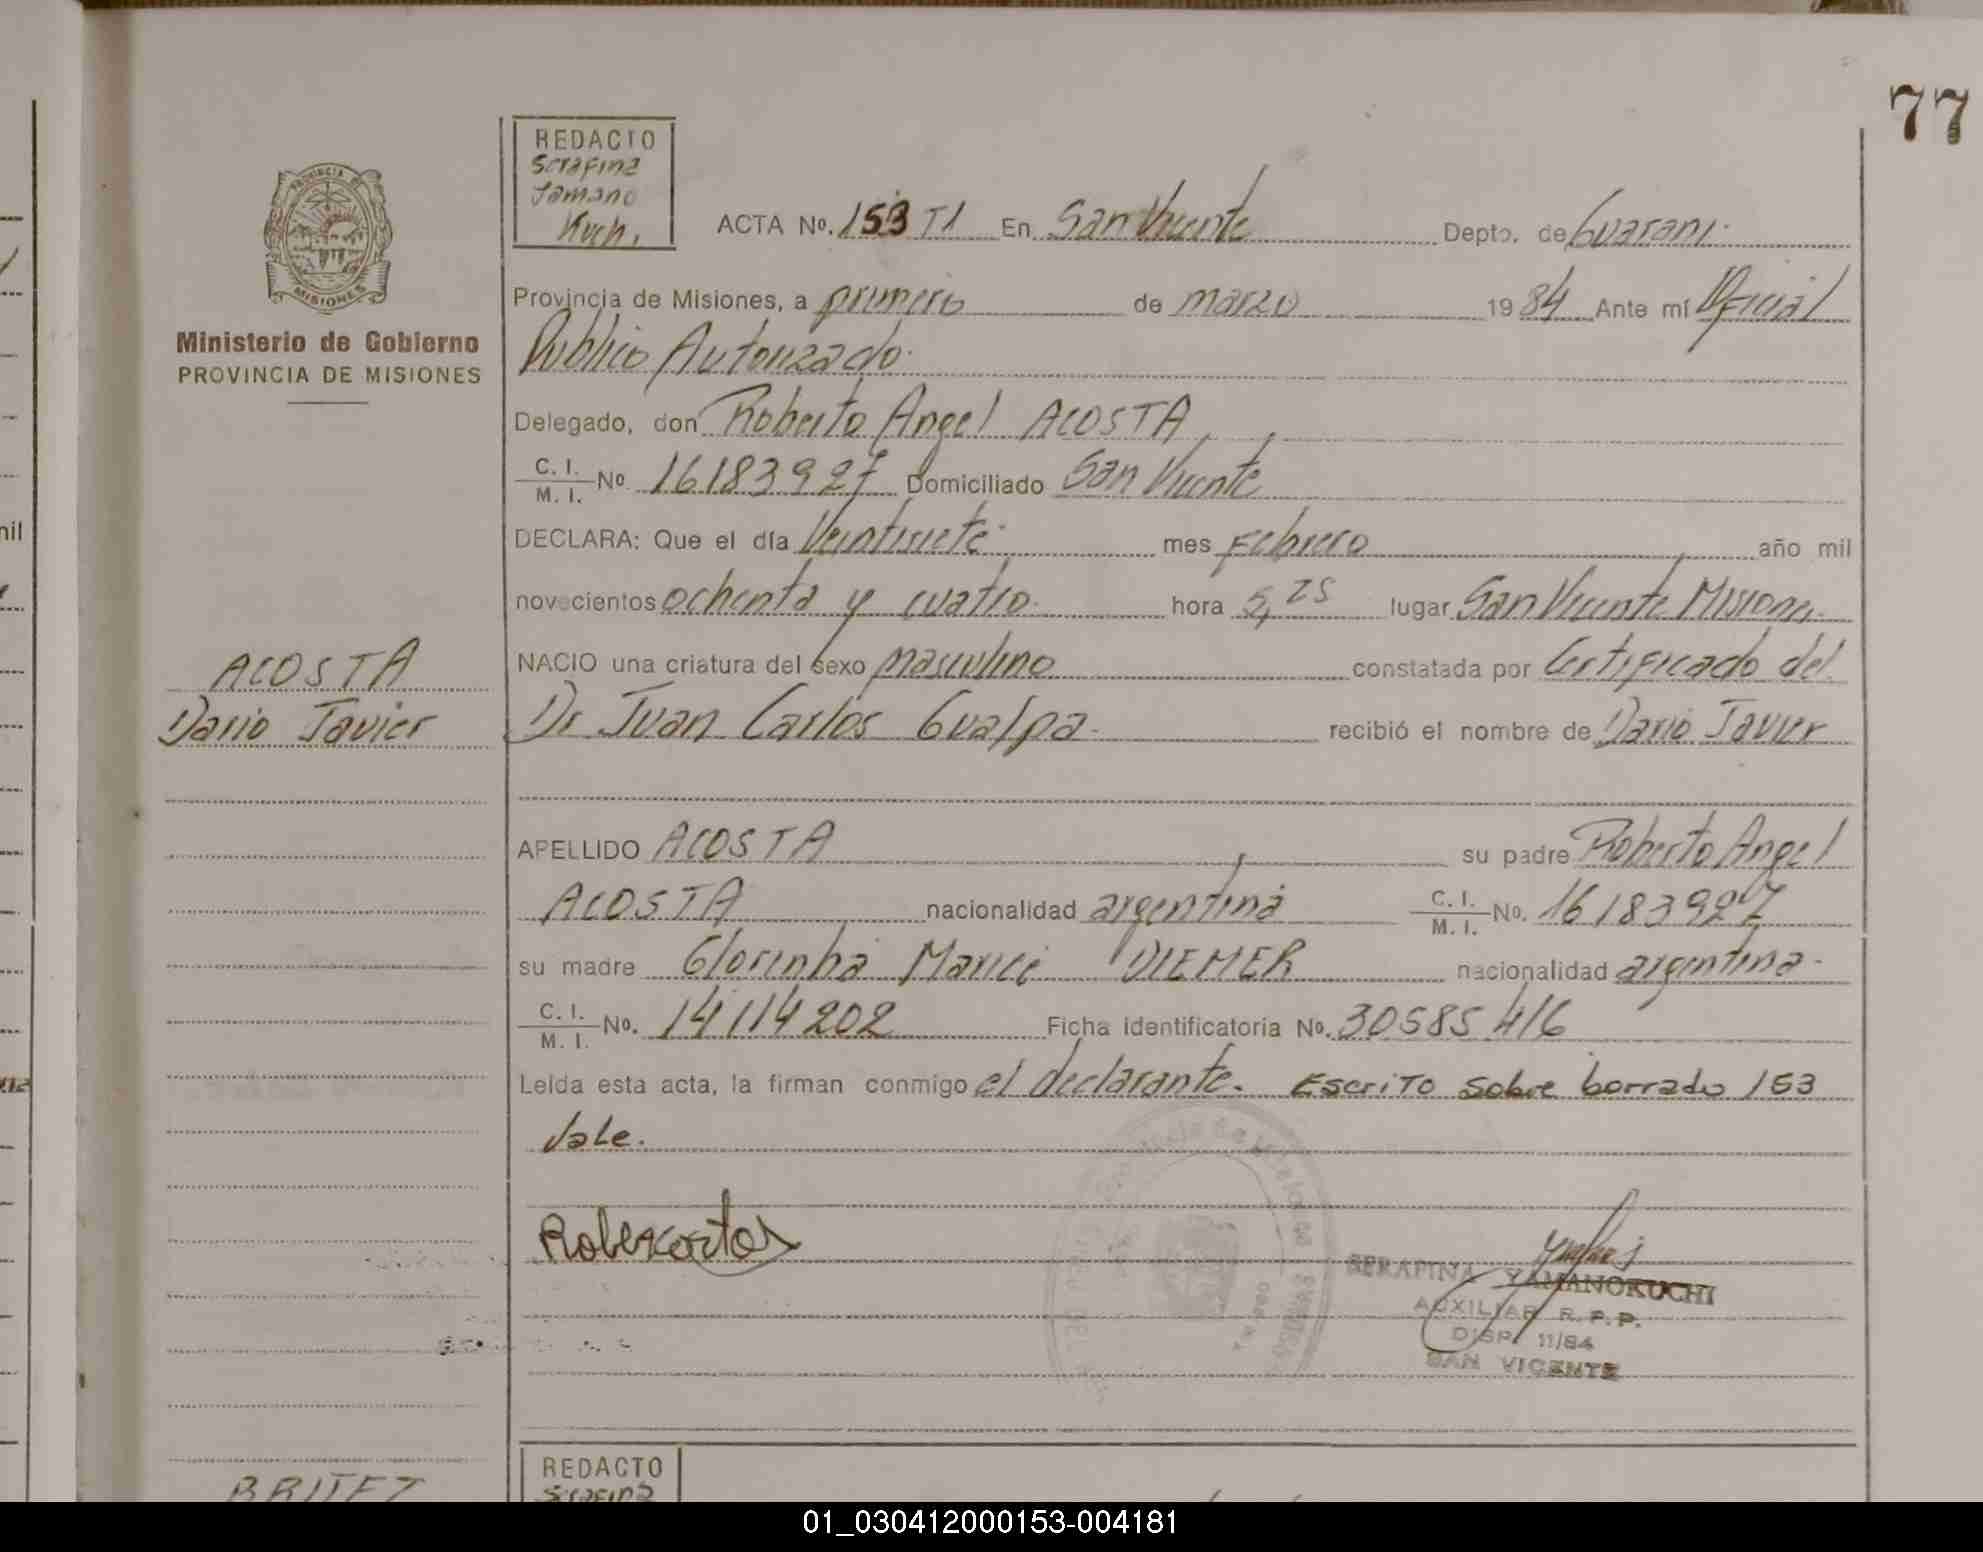 77
REDACTO
Serafina
Yamano
Kuch.
ACTA No. 153 T1 En San Vicente Depto. de Guarani.
PROVINCIA DE
MISIONES
Provincia de Misiones, a primero de marzo 1984 Ante mí Oficial
Ministerio de Gobierno
PROVINCIA DE MISIONES
Publico Autorizado.
Delegado, don Roberto Angel ACOSTA,
C. I. / M. I. No 16183927 Domiciliado San Vicente
DECLARA: Que el día Veintisiete mes Febrero año mil
novecientos ochenta y cuatro. hora 5,25 lugar San Vicente Misiones.
NACIO una criatura del sexo masculino constatada por Certificado del
ACOSTA
Dario Javier
Dr Juan Carlos Gualpa. recibió el nombre de Dario Javier
APELLIDO ACOSTA, su padre Roberto Angel
ACOSTA nacionalidad argentina C. I. / M. I. No. 16183927
su madre Glorinha Marice DIEMER nacionalidad argentina.
C. I. / M. I. No. 14114202 Ficha identificatoria No. 30585416
Leída esta acta, la firman conmigo el declarante. Escrito sobre borrado 153
Vale.
SERAFINA YAMANOKUCHI
AUXILIAR R.P.P.
DISP. 11/84
SAN VICENTE
BRITEZ
REDACTO
Serafina
nil
01_030412000153-004181